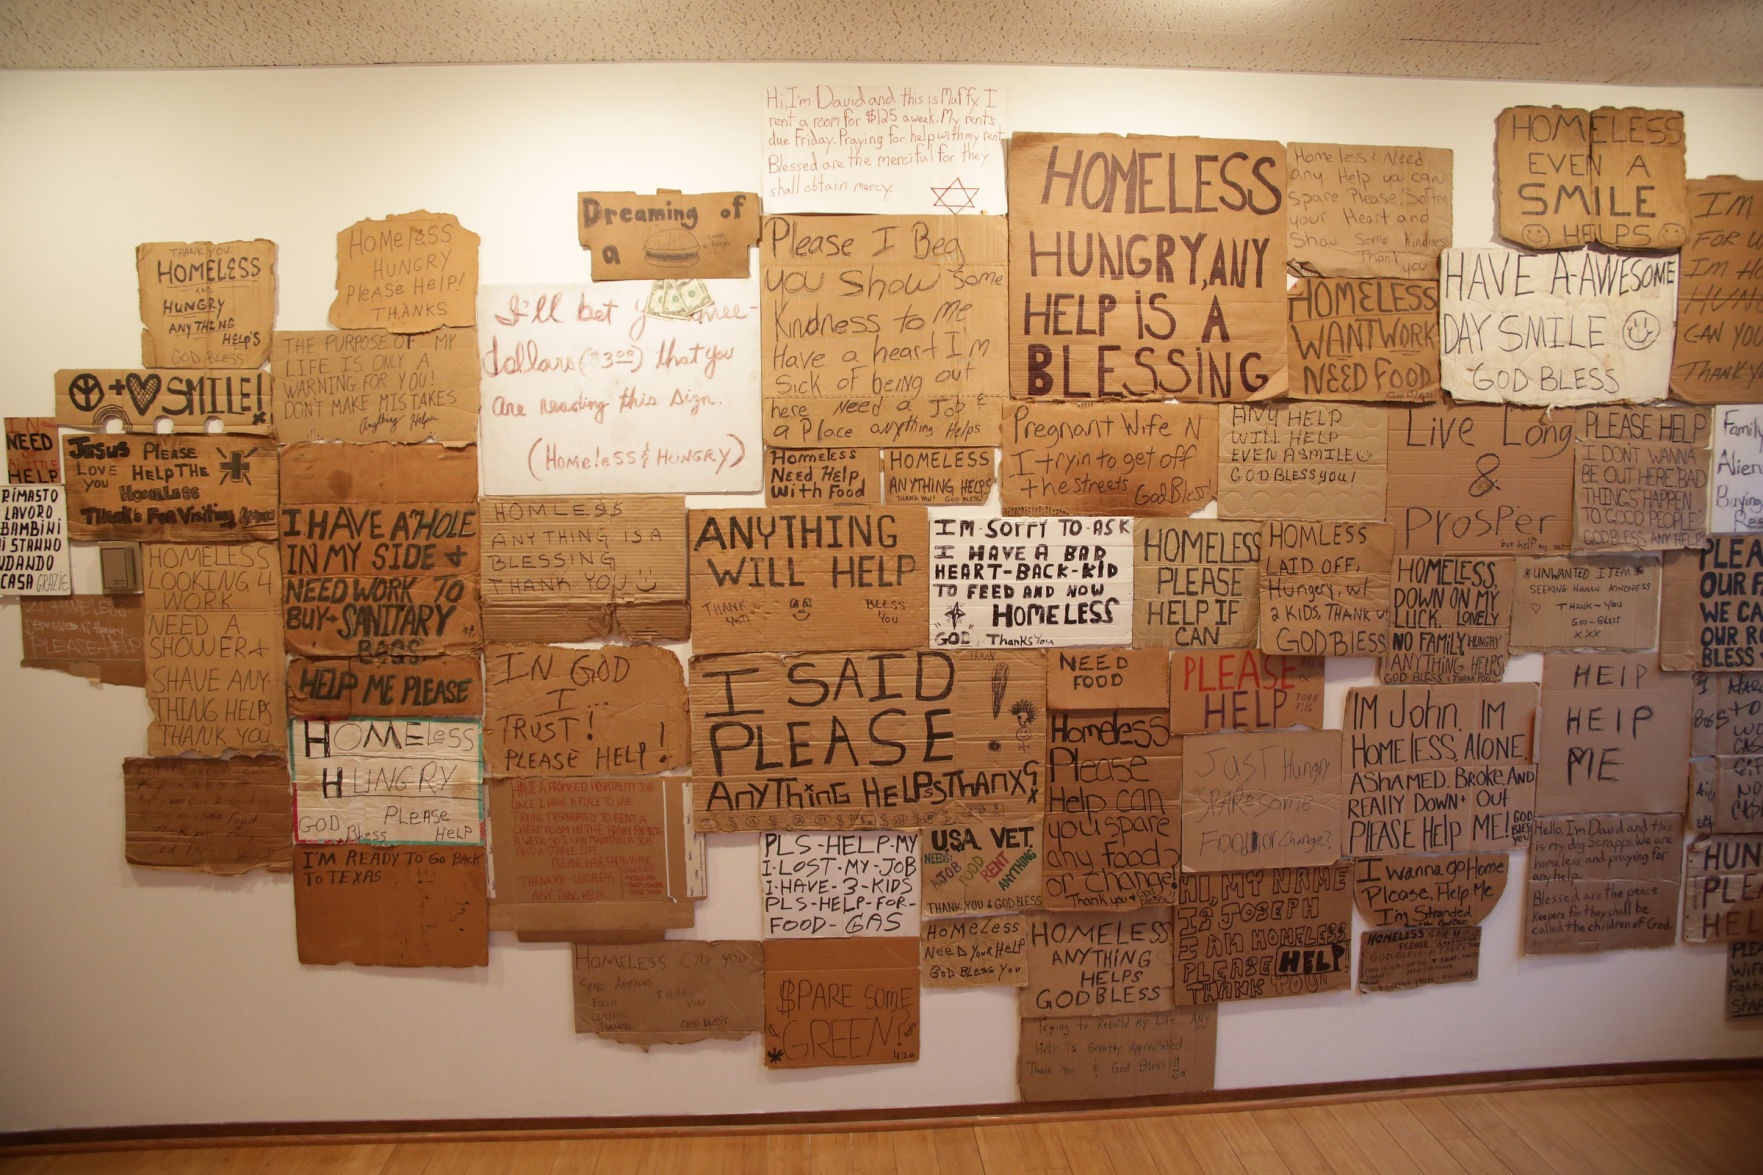 Hi, I'm David and this is Muffy. I
rent a room for $125 a week. My rent's
due Friday. Praying for help with my rent
Blessed are the merciful for they
shall obtain mercy.
Dreaming of
a
THANK YOU
HOMELESS
AND
HUNGRY
ANYTHING
HELP'S
GOD BLESS
HOMELESS
HUNGRY
PLEASE HELP!
THANKS
THE PURPOSE OF MY
LIFE IS ONLY A
WARNING FOR YOU!
DONT MAKE MISTAKES
Anything Helps
I'll bet
dollars ($3.00) that you
are reading this sign.
(HOMELESS & HUNGRY)
Please I Beg
you show some
Kindness to me
Have a heart I'm
Sick of being out
here Need a Job &
a Place anything Helps
HOMELESS
HUNGRY, ANY
HELP IS A
BLESSING
Homeless! Need
any Help you can
spare Please! Soften
your Heart and
Show Some Kindness
Thank you
HOMELESS
EVEN A
SMILE
HELPS
HOMELESS
WANT WORK
NEED FOOD
HAVE A-AWESOME
DAY SMILE
GOD BLESS
IM
FOR
IM H
CAN YOU
THANK Y
+ SMILE!
NEED
HELP
JESUS Please
LOVE HELP THE
YOU Homeless
Thank's For Visiting
RIMASTO
LAVORO
BAMBINI
STANNO
NDANDO
CASA GRAZIE
HOMELESS
LOOKING 4
WORK
NEED A
SHOWER +
SHAVE ANY
THING HELPS
THANK YOU
I HAVE A "HOLE
IN MY SIDE +
NEED WORK TO
BUY- SANITARY
BAGS.
HELP ME PLEASE
HOMLESS
ANYTHING IS A
BLESSING
THANK YOU
Homeless
Need Help
With Food
HOMELESS
ANYTHING HELPS
THANK YOU! GOD BLESS
Pregnant Wife N
I tryin to get off
the streets God Bless!
ANY HELP
WILL HELP
EVEN A SMILE
GOD BLESS YOU!
Live Long
&
Prosper
PLEASE HELP
I DONT WANNA
BE OUT HERE, BAD
THINGS HAPPEN
TO GOOD PEOPLE,
GOD BLESS ANY HELP!
Family
Alien
Buying
ANYTHING
WILL HELP
THANK YOU
BLESS YOU
I'M SORRY TO ASK
I HAVE A BAD
HEART-BACK-KID
TO FEED AND NOW
HOMELESS
GOD, Thanks You
HOMELESS
PLEASE
HELP IF
CAN
HOMLESS
LAID OFF,
Hungery, w/
2 KIDS, THANK U
GOD BLESS
HOMELESS,
DOWN ON MY
LUCK. LONELY
NO FAMILY HUNGRY
ANYTHING HELPS
GOD BLESS & THANK YOU
*UNWANTED ITEM*
SEEKING HUMAN KINDNESS
THANK-YOU
GOD-BLESS
XXX
PLEA
OUR
WE CA
OUR R
BLESS
HOMELESS
HUNGRY
PLEASE
GOD BLESS HELP
IN GOD
I...
TRUST!
PLEASE HELP!
I SAID
PLEASE!
ANYTHING HELPS THANX
NEED
FOOD
PLEASE
HELP
Homeless
Please
Help can
you spare
any food?
or change!
Thank you
JUST Hungry
SPARE some
FOOD or Change?
IM John. IM
HOMELESS. ALONE.
ASHAMED. BROKE. AND
REALLY DOWN + OUT
PLEASE HELP ME! GOD BLESS YOU
HELP
HELP
ME
HAVE A PROMISED HOSPITALITY JOB
ONCE I HAVE A PLACE TO LIVE
TRYING DESPERATELY TO RENT A
CHEAP ROOM IN THE BRONX FOR $125
I'M READY TO GO BACK
TO TEXAS
PLS-HELP-MY
I-LOST-MY-JOB
I-HAVE-3-KIDS
PLS-HELP-FOR-
FOOD-GAS
USA VET.
NEEDS:
A JOB FOOD RENT ANYTHING
THANK YOU & GOD BLESS
HOMELESS
NEED YOUR HELP
GOD BLESS YOU
HOMELESS
ANYTHING
HELPS
GOD BLESS
HI, MY NAME
IS JOSEPH
I AM HOMELESS
PLEASE HELP!
THANK YOU
I wanna go Home
Please, Help Me
I'm Stranded
Hello, I'm David and this
is my dog Scrapps. We are
homeless and praying for
any help.
Blessed are the peace
Keepers for they shall be
called the children of God.
HUN
PLE
HEL
HOMELESS CAN YOU
SPARE ANYTHING
FOOD
THANK
YOU
GOD BLESS
$PARE SOME
GREEN?
4:20
Trying to Rebuild My Life... ANY
Help is Greatly Appreciated...
Thank You & God Bless!!